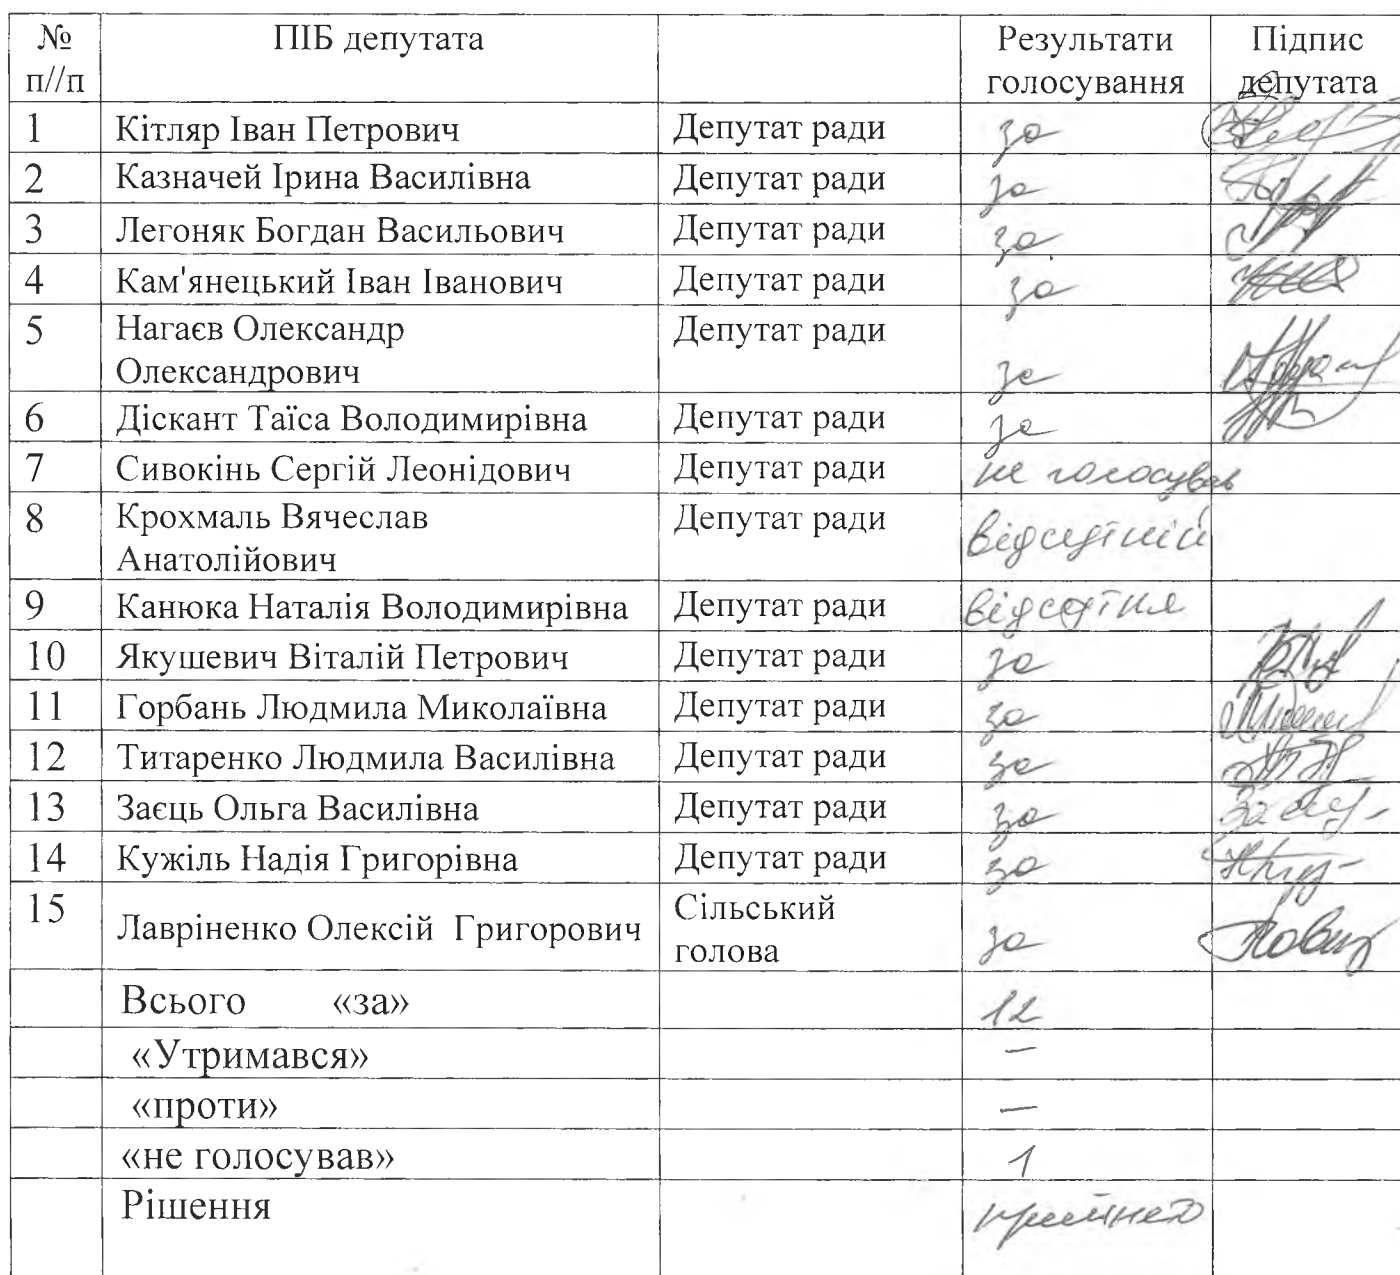 № п//п ПІБ депутата Результати голосування Підпис депутата
1 Кітляр Іван Петрович Депутат ради за
2 Казначей Ірина Василівна Депутат ради за
3 Легоняк Богдан Васильович Депутат ради за
4 Кам'янецький Іван Іванович Депутат ради за
5 Нагаєв Олександр Олександрович Депутат ради за
6 Діскант Таїса Володимирівна Депутат ради за
7 Сивокінь Сергій Леонідович Депутат ради не голосував
8 Крохмаль Вячеслав Анатолійович Депутат ради відсутній
9 Канюка Наталія Володимирівна Депутат ради відсутня
10 Якушевич Віталій Петрович Депутат ради за
11 Горбань Людмила Миколаївна Депутат ради за
12 Титаренко Людмила Василівна Депутат ради за
13 Заєць Ольга Василівна Депутат ради за
14 Кужіль Надія Григорівна Депутат ради за
15 Лавріненко Олексій Григорович Сільський голова за
Всього «за» 12
«Утримався» —
«проти» —
«не голосував» 1
Рішення прийнято